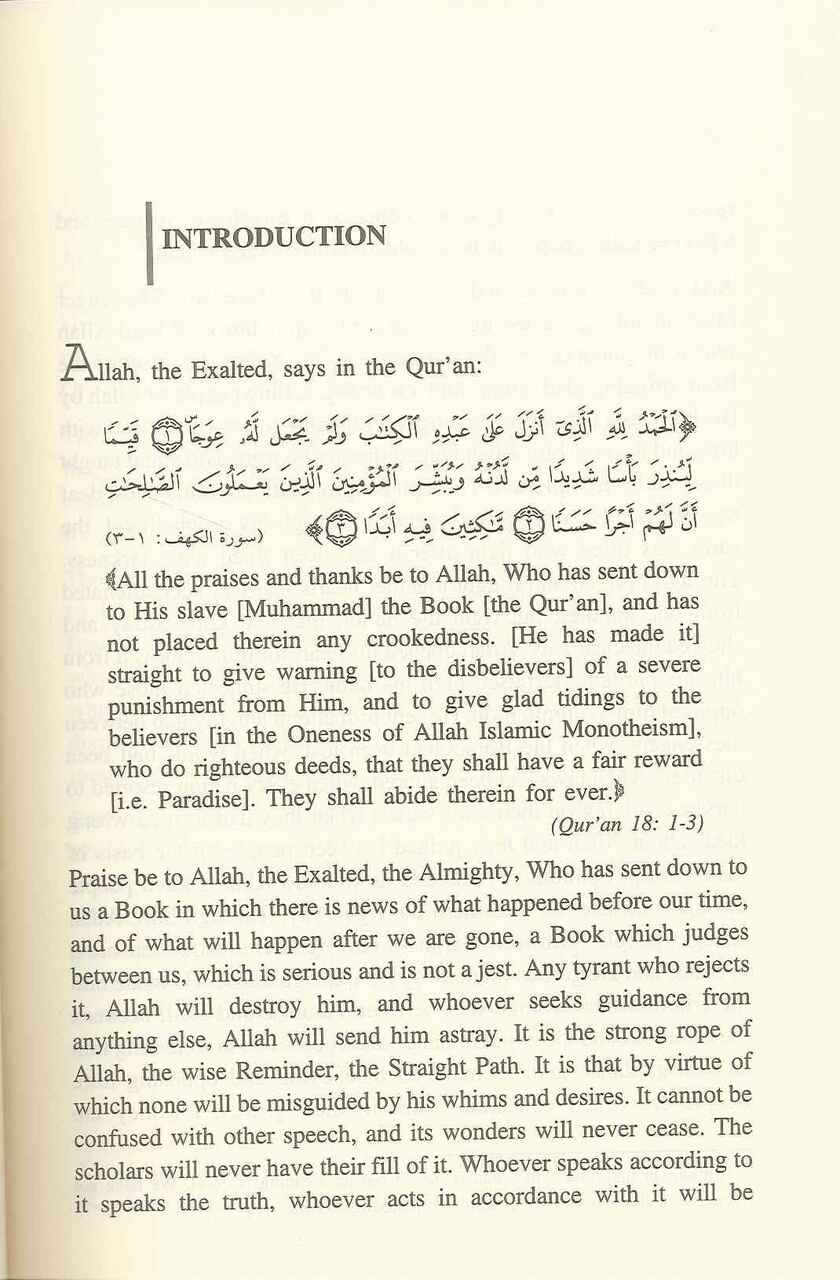 INTRODUCTION
Allah, the Exalted, says in the Qur'an:
﴿ٱلْحَمْدُ لِلَّهِ ٱلَّذِىٓ أَنزَلَ عَلَىٰ عَبْدِهِ ٱلْكِتَٰبَ وَلَمْ يَجْعَل لَّهُۥ عِوَجَاۜ ١ قَيِّمًا
لِّيُنذِرَ بَأْسًا شَدِيدًا مِّن لَّدُنْهُ وَيُبَشِّرَ ٱلْمُؤْمِنِينَ ٱلَّذِينَ يَعْمَلُونَ ٱلصَّٰلِحَٰتِ
أَنَّ لَهُمْ أَجْرًا حَسَنًا ٢ مَّٰكِثِينَ فِيهِ أَبَدًا ٣﴾ (سورة الكهف: ١-٣)
﴿All the praises and thanks be to Allah, Who has sent down
to His slave [Muhammad] the Book [the Qur'an], and has
not placed therein any crookedness. [He has made it]
straight to give warning [to the disbelievers] of a severe
punishment from Him, and to give glad tidings to the
believers [in the Oneness of Allah Islamic Monotheism],
who do righteous deeds, that they shall have a fair reward
[i.e. Paradise]. They shall abide therein for ever.﴾
(Qur'an 18: 1-3)
Praise be to Allah, the Exalted, the Almighty, Who has sent down to
us a Book in which there is news of what happened before our time,
and of what will happen after we are gone, a Book which judges
between us, which is serious and is not a jest. Any tyrant who rejects
it, Allah will destroy him, and whoever seeks guidance from
anything else, Allah will send him astray. It is the strong rope of
Allah, the wise Reminder, the Straight Path. It is that by virtue of
which none will be misguided by his whims and desires. It cannot be
confused with other speech, and its wonders will never cease. The
scholars will never have their fill of it. Whoever speaks according to
it speaks the truth, whoever acts in accordance with it will be